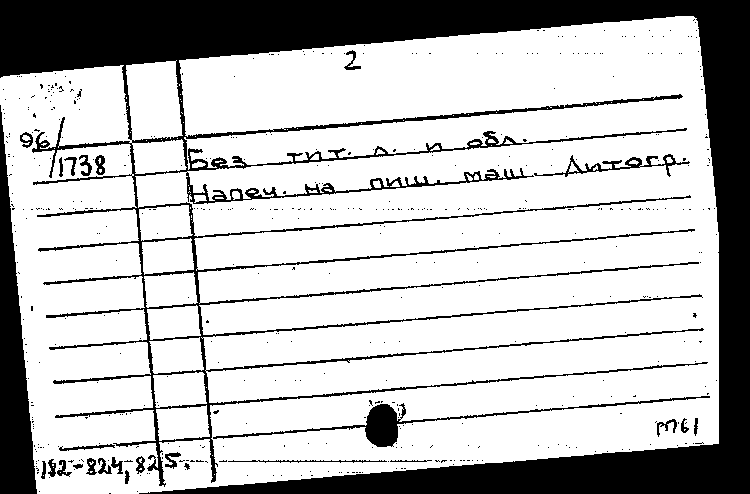 2
96/1738
Без тит. л. и обл.
Напеч. на пиш. маш. Литогр.
182-824, 825.